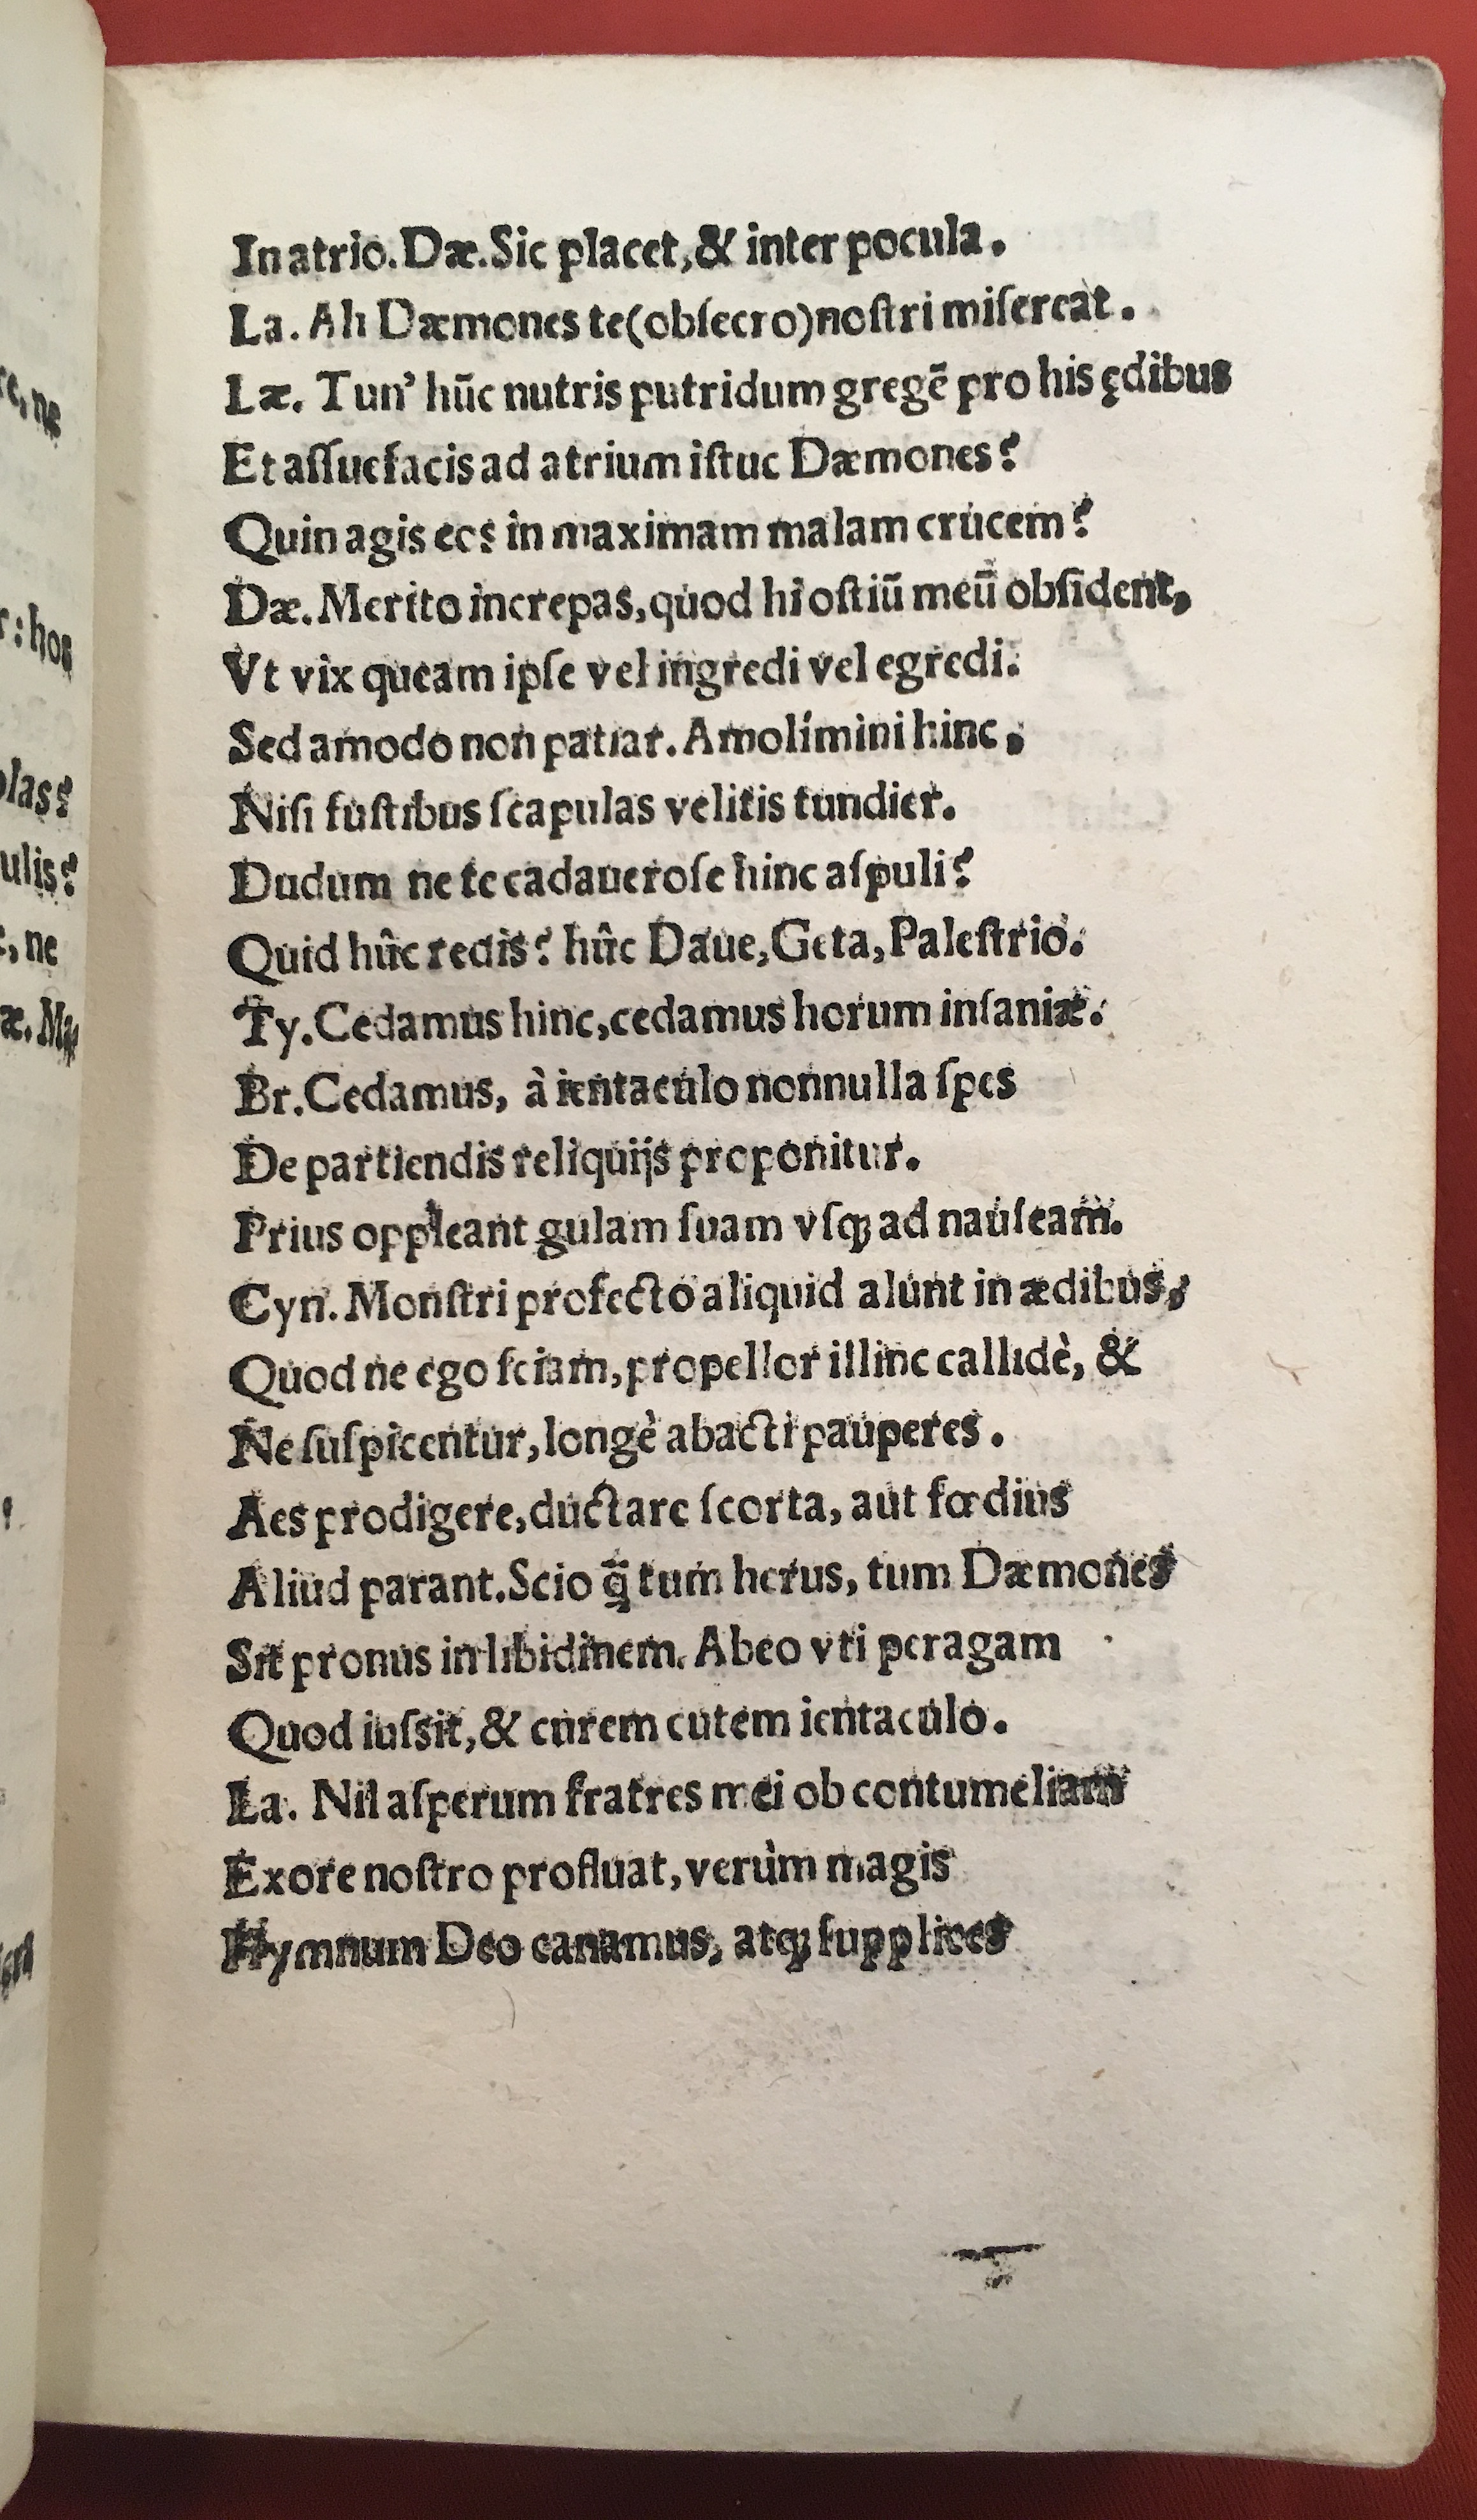 In atrio. Dæ. Sic placet, & inter pocula.
La. Ah Dæmones te (obſecro) noſtri miſereat.
Læ. Tun' hūc nutris putridum gregē pro his ędibus
Et aſſuefacis ad atrium iſtuc Dæmones?
Quin agis eos in maximam malam crucem?
Dæ. Merito increpas, quod hi oſtiū meū obſident,
Vt vix queam ipſe vel ingredi vel egredi.
Sed amodo non patiar. Amolímini hinc,
Niſi fuſtibus ſcapulas velitis tundier.
Dudum ne te cadaueroſe hinc aſpuli?
Quid hûc redis? hûc Daue, Geta, Paleſtrio.
Ty. Cedamus hinc, cedamus horum inſaniæ.
Br. Cedamus, à ientaculo nonnulla ſpes
De partiendis reliquijs proponitur.
Prius oppleant gulam ſuam vſqꝫ ad nauſeam.
Cyn. Monſtri profecto aliquid alunt in ædibus,
Quod ne ego ſciam, propellor illinc callidè, &
Ne ſuſpicentur, longè abacti pauperes.
Aes prodigere, ductare ſcorta, aut fœdius
Aliud parant. Scio q̄ tum herus, tum Dæmones
Sit pronus in libidinem. Abeo vti peragam
Quod iuſsit, & curem cutem ientaculo.
La. Nil aſperum fratres mei ob contumeliam
Ex ore noſtro profluat, verùm magis
Hymnum Deo canamus, atqꝫ ſupplices
re, ne
r: hos
olas?
ulis?
, ne
æ. Ma